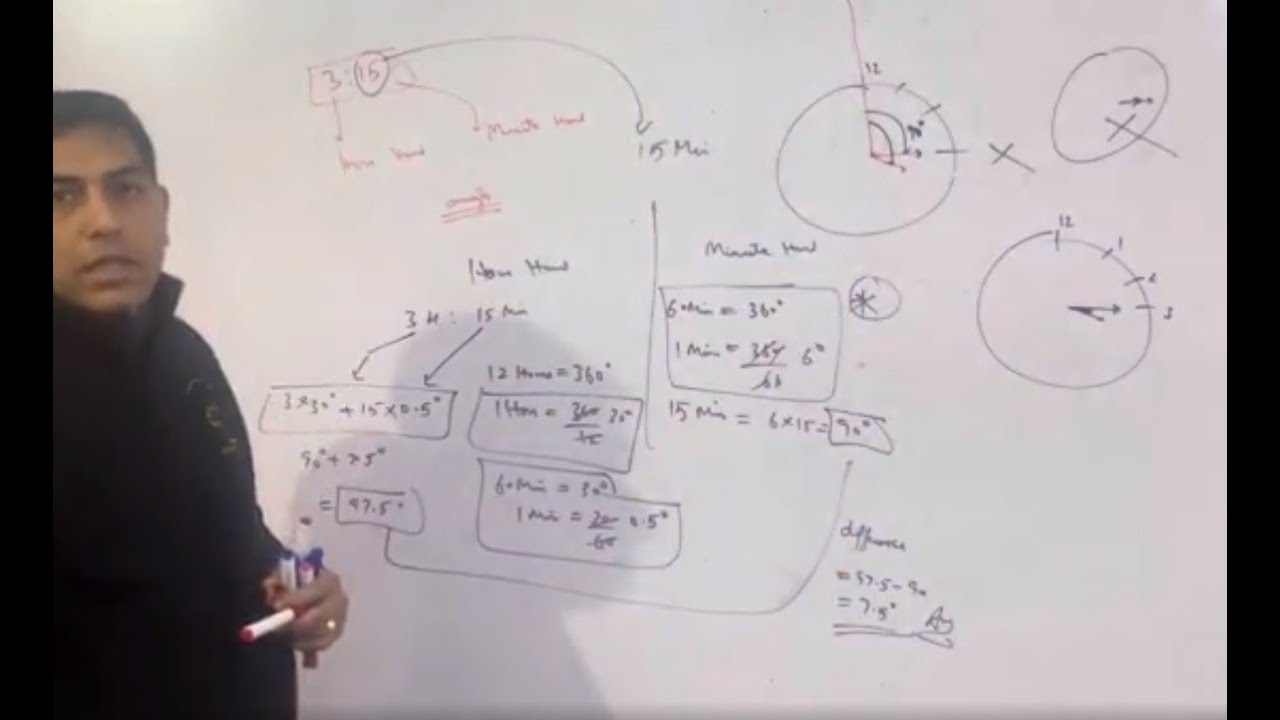 3:15
Minute Hand
Hour Hand
15 Min
angle
Hour Hand
3 H : 15 Min
3×30°+15×0.5°
90°+7.5°
= 97.5°
12 Hour = 360°
1 Hour = 360/12 30°
60 Min = 30°
1 Min = 30/60 0.5°
Minute Hand
60 Min = 360°
1 Min = 360/60 6°
*
15 Min = 6×15 = 90°
difference
= 97.5 - 90
= 7.5° Ans
12
90°
12
1
2
3